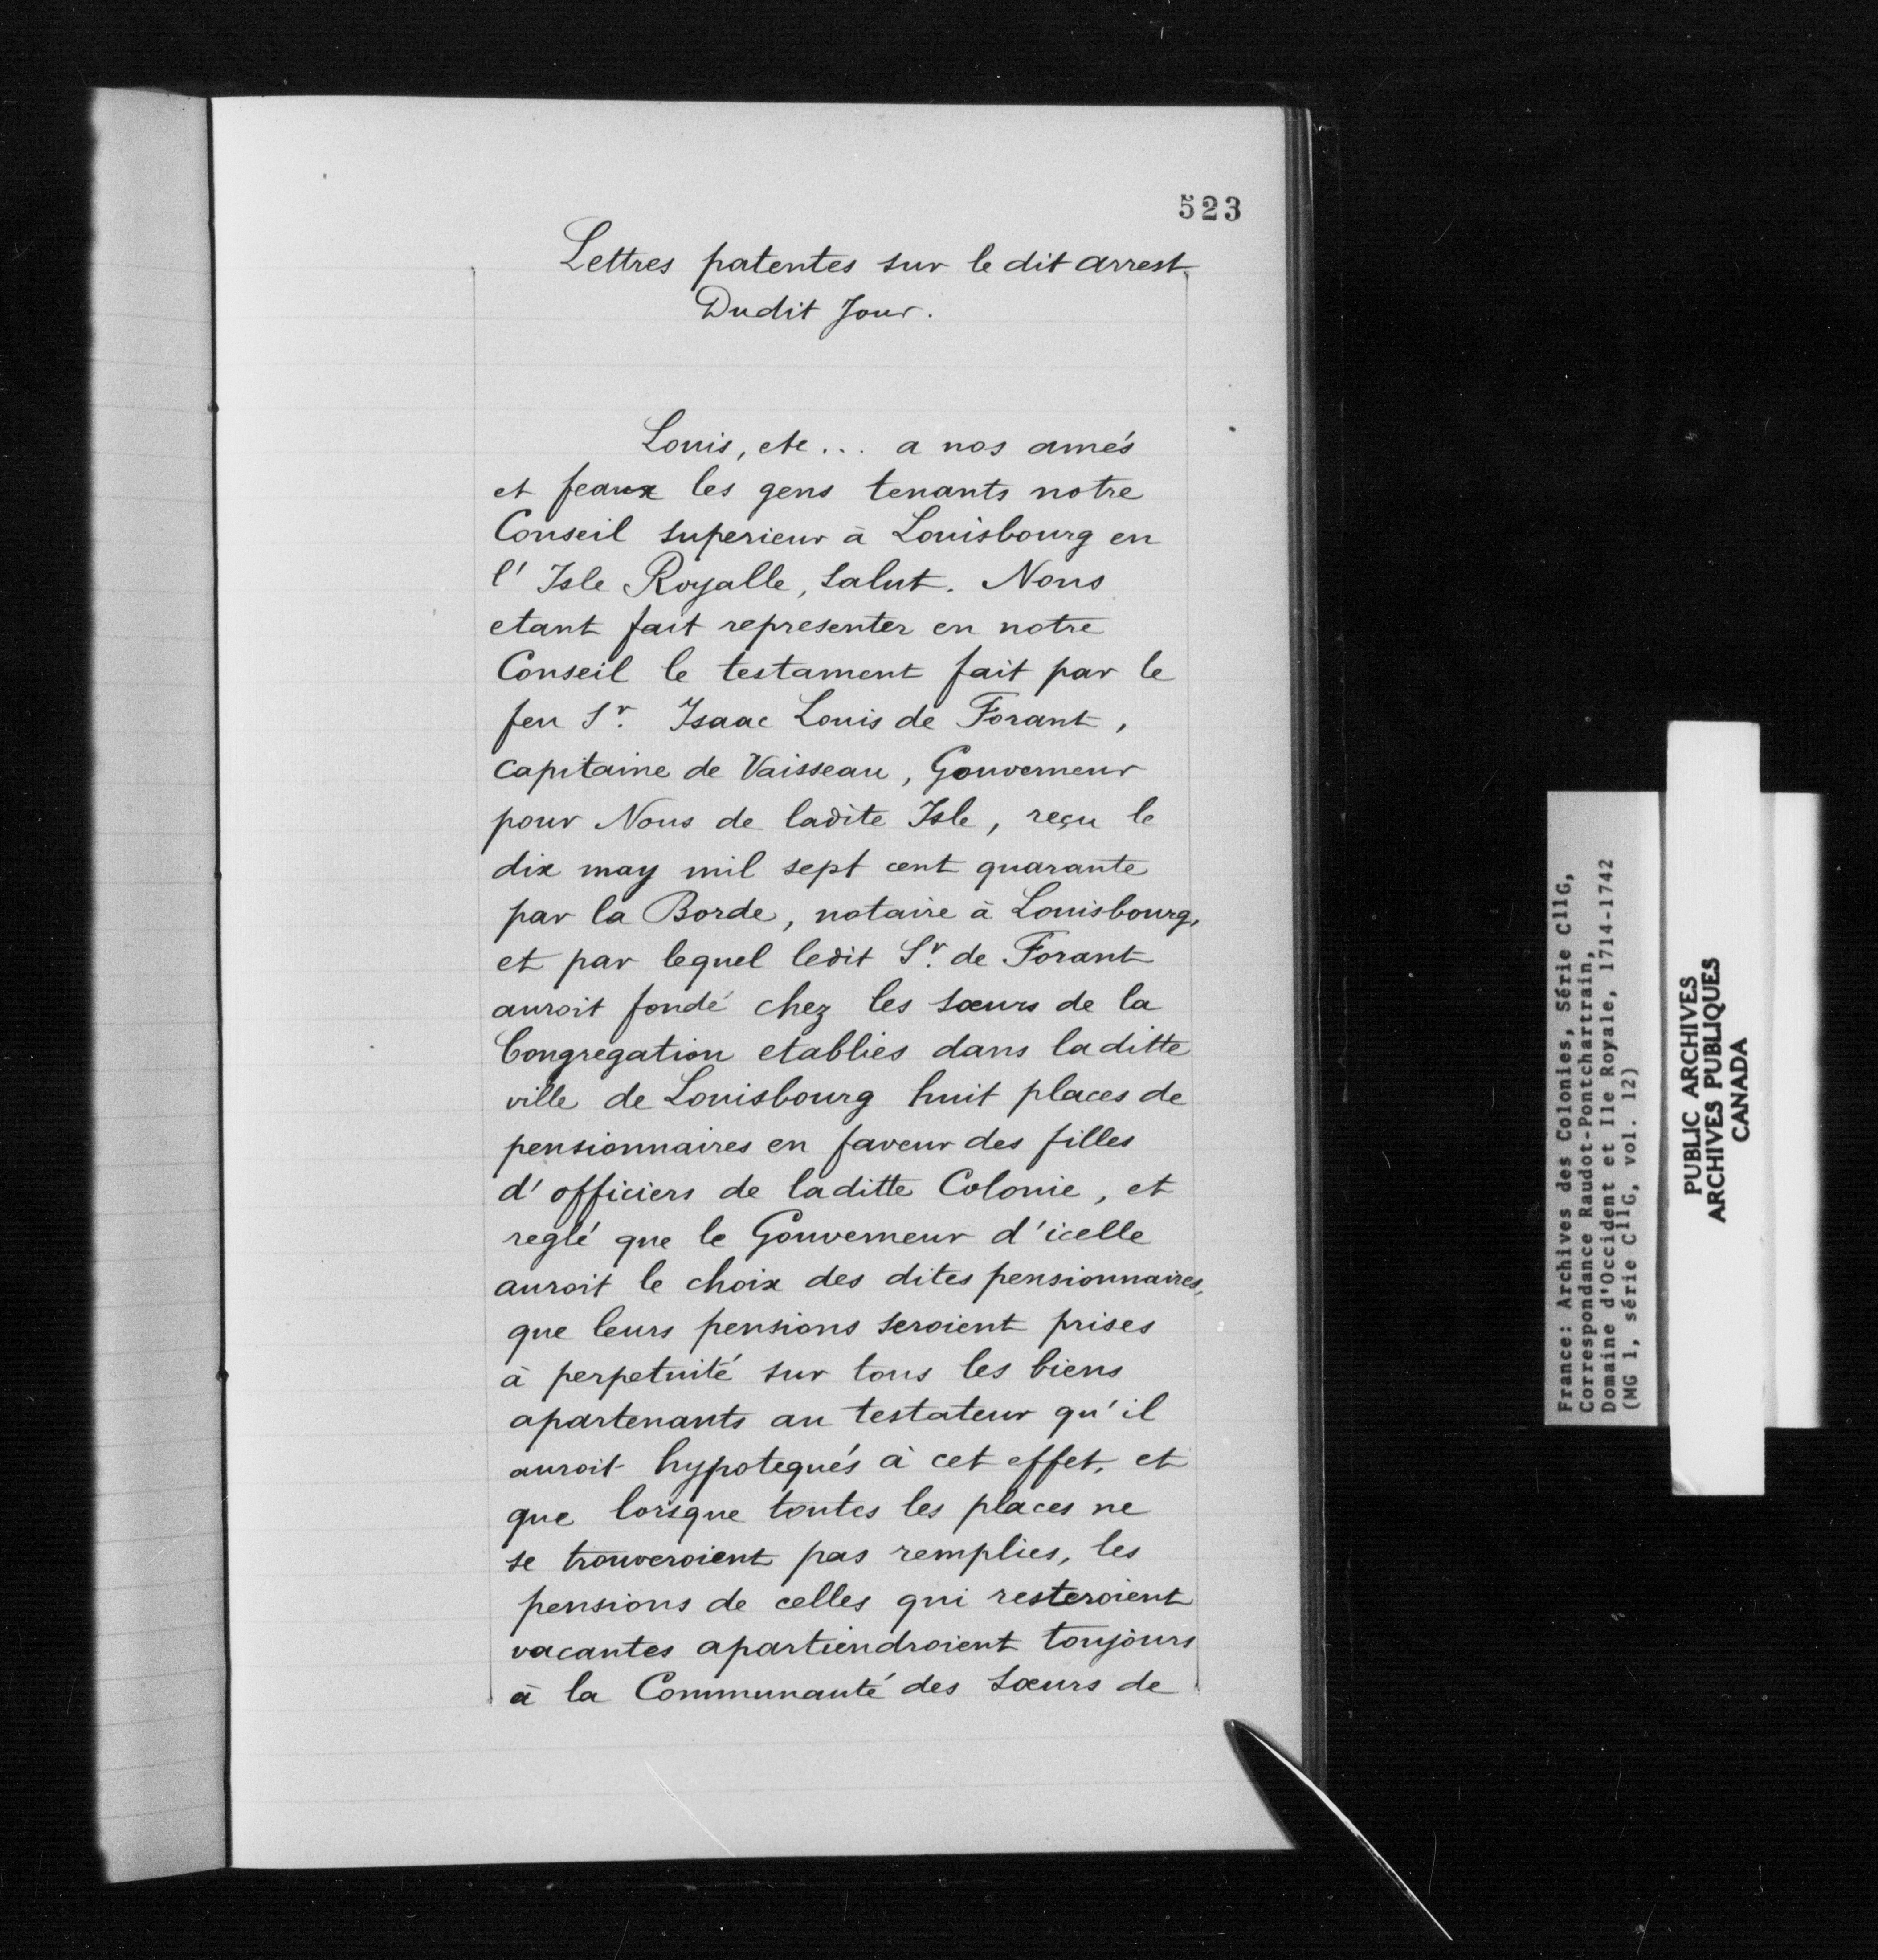 523
Lettres patentes sur le dit arrest
Dudit Jour.
Louis, etc... a nos amés
et feaux les gens tenants notre
Conseil superieur à Louisbourg en
l'Isle Royalle, salut. Nous
etant fait representer en notre
Conseil le testament fait par le
feu Sr. Isaac Louis de Forant,
Capitaine de Vaisseau, Gouverneur
pour Nous de ladite Isle, reçu le
dix may mil sept cent quarante
par la Borde, notaire à Louisbourg,
et par lequel ledit Sr. de Forant
auroit fondé chez les sœurs de la
Congregation etablies dans laditte
ville de Louisbourg huit places de
pensionnaires en faveur des filles
d'officiers de laditte Colonie, et
reglé que le Gouverneur d'icelle
auroit le choix des dites pensionnaires,
que leurs pensions seroient prises
à perpetuité sur tous les biens
apartenants au testateur qu'il
auroit hypotequés à cet effet, et
que lorsque toutes les places ne
se trouveroient pas remplies, les
pensions de celles qui resteroient
vacantes apartiendroient toujours
à la Communauté des sœurs de
France: Archives des Colonies, Série C11G,
Correspondance Raudot-Pontchartrain,
Domaine d'Occident et Ile Royale, 1714-1742
(MG 1, série C11G, vol. 12)
PUBLIC ARCHIVES
ARCHIVES PUBLIQUES
CANADA